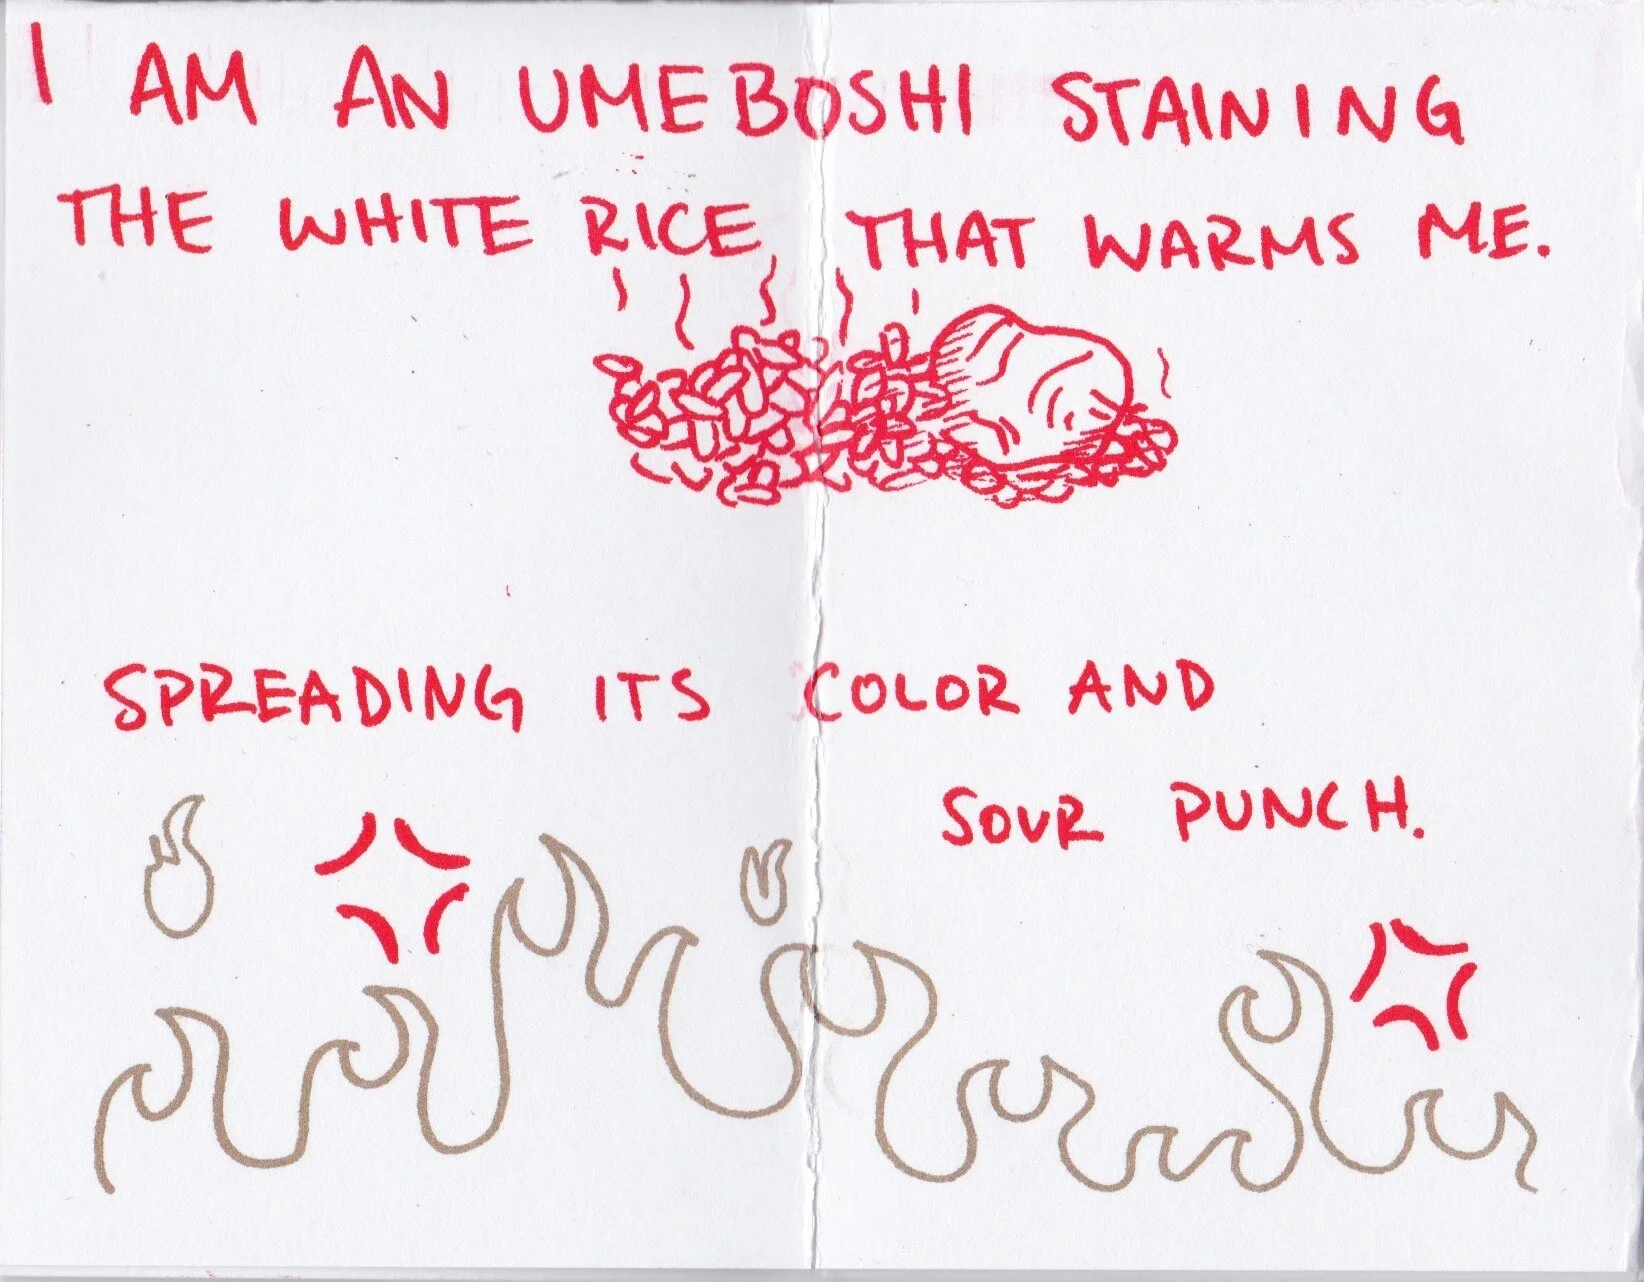 I AM AN UMEBOSHI STAINING
THE WHITE RICE THAT WARMS ME.
SPREADING ITS COLOR AND
SOUR PUNCH.